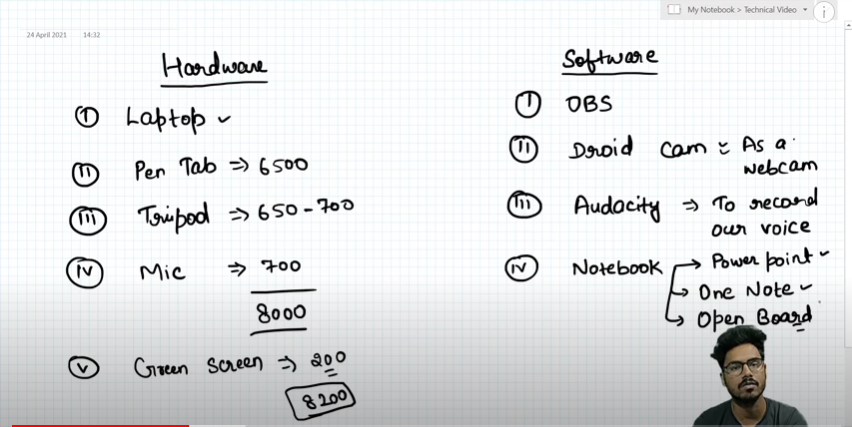 My Notebook > Technical Video
24 April 2021 14:32
Hardware
I Laptop ✓
II Pen Tab ⇒ 6500
III Tripod ⇒ 650 - 700
IV Mic ⇒ 700
8000
V Green Screen ⇒ 200
8200
Software
I OBS
II Droid Cam = As a
webcam
III Audacity ⇒ To record
our voice
IV Notebook → Power point ✓
→ One Note ✓
→ Open Board